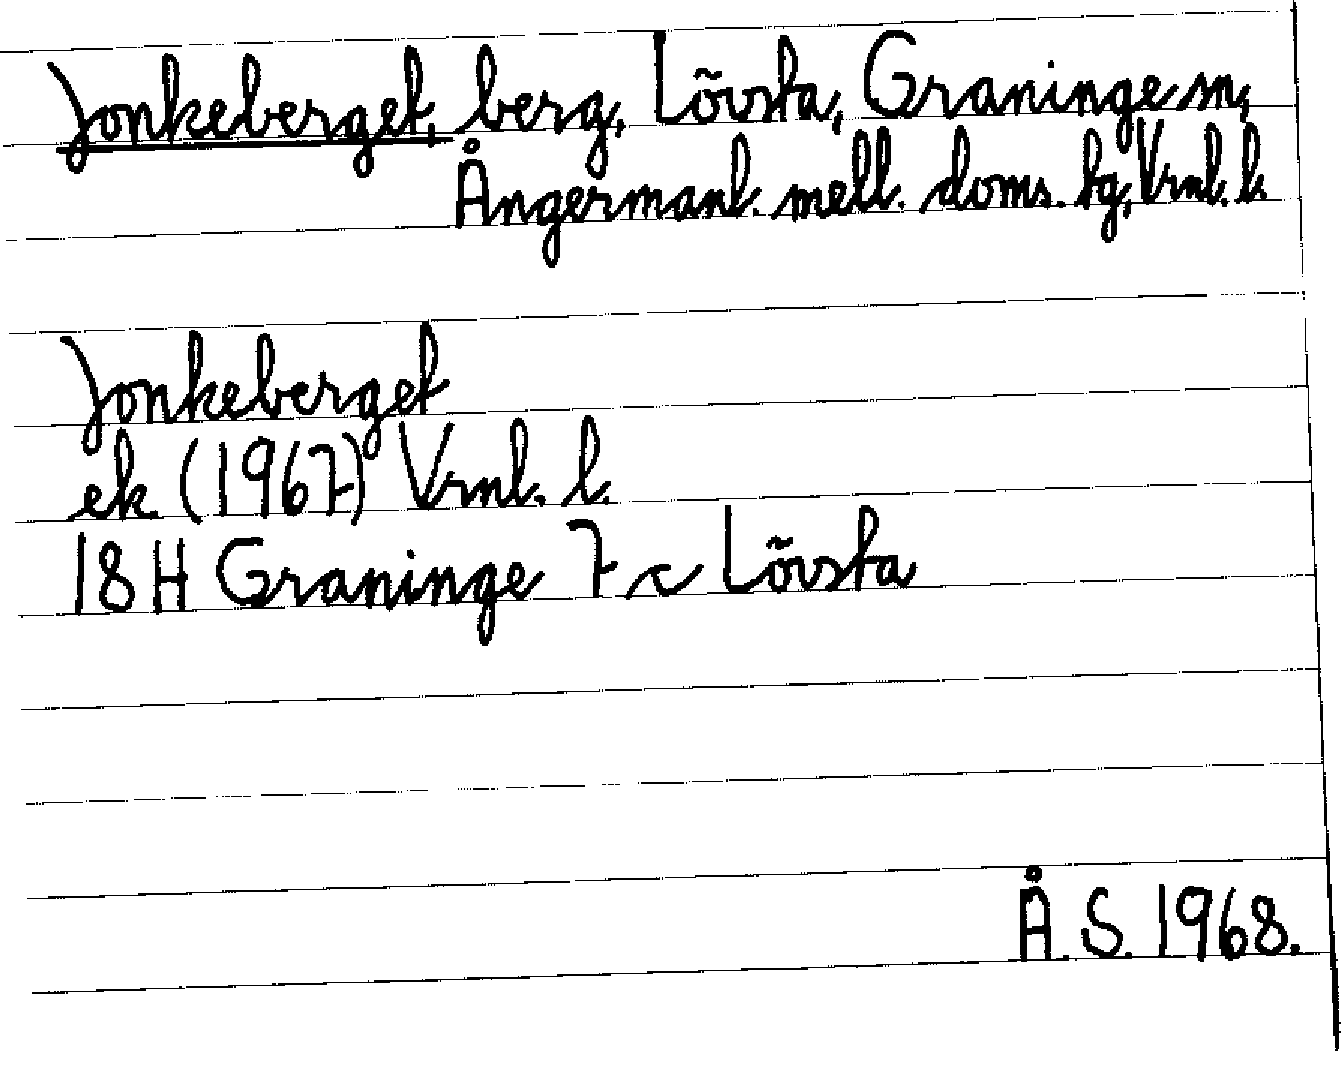 Jonkeberget, berg, Lövsta, Graninge sn,
Ångermanl. mell. doms. tg, Vrnl. l.
Jonkeberget
ek (1967) Vrnl. l.
18 H Graninge 7 c Lövsta
Å. S. 1968.